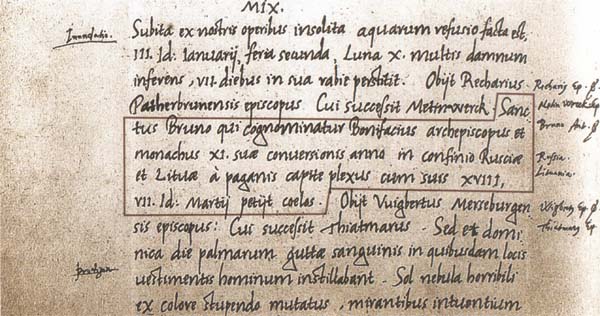 MIX.
Inundatio.
Subita ex nostris operibus insolita aquarum refusio facta est,
III. Id: Ianuarij, feria secunda, Luna X. multis damnum
inferens, VII. diebus in sua rabie perstitit. Obijt Recharius
Patherbrunensis episcopus Cui successit Metinwerck. Sanc
tus Bruno qui cognominatur Bonifacius archepiscopus et
monachus XI. suæ conversionis anno in confinio Rusciæ
et Lituæ à paganis capite plexus cum suis XVIII,
VII. Id: Martij petijt coelos. Obijt Vuigbertus Merseburgen
sis episcopus: Cui successit Thiatmarus. Sed et domi
nica die palmarum guttæ sanguinis in quibusdam locis
vestimentis hominum instillabant. Sol nebula horribili
ex colore stupendo mutatus, mirantibus intuentium
Rechariꝰ Ep.
Ep
Bruno
Russia.
Lituania.
Ep.
Thiatmarꝰ Ep